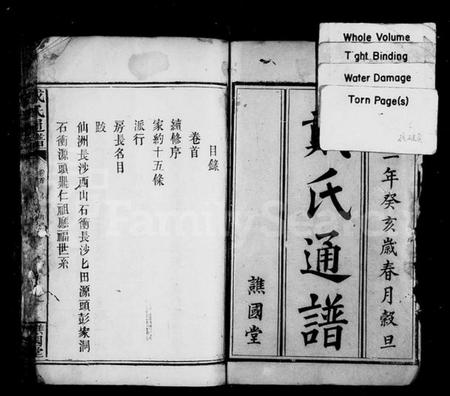 Whole Volume
Tight Binding
Water Damage
Torn Page(s)
一年癸亥歲春月穀旦
戴氏通譜
譙國堂
目錄
卷首
續修序
家約十五條
派行
房長名目
跋
仙洲長沙西山石衝長沙七田源頭彭家洞
石衝源頭興仁祖廳福世系
戴氏通譜
FamilySearch